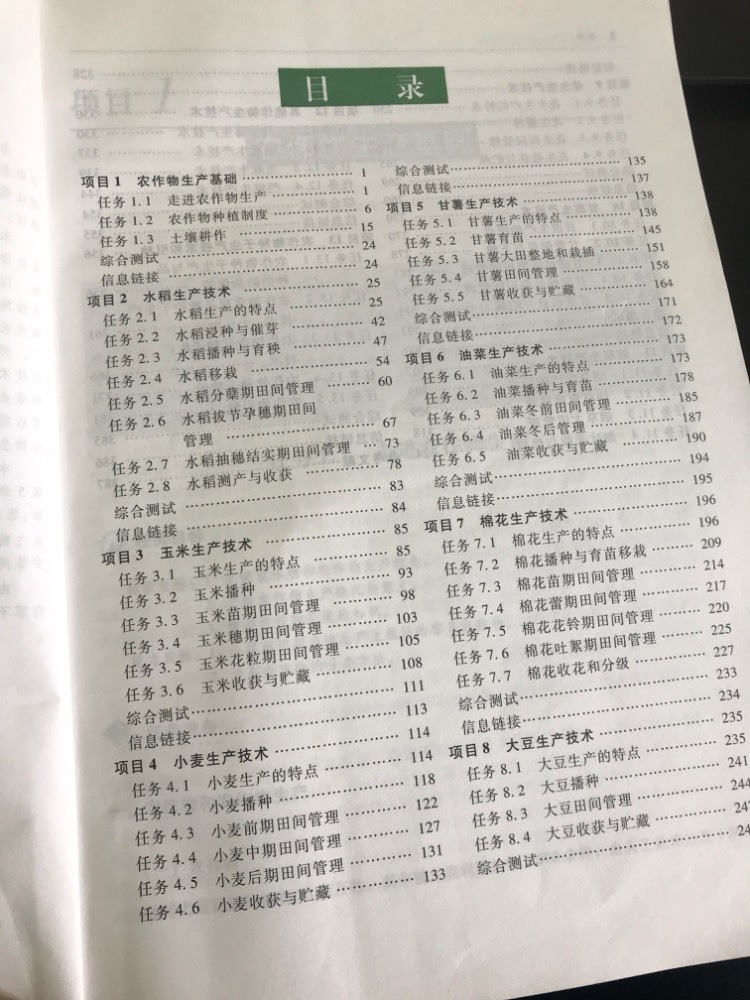 目 录
项目1 农作物生产基础 …… 1
任务1.1 走进农作物生产 …… 1
任务1.2 农作物种植制度 …… 6
任务1.3 土壤耕作 …… 15
综合测试 …… 24
信息链接 …… 24
项目2 水稻生产技术 …… 25
任务2.1 水稻生产的特点 …… 25
任务2.2 水稻浸种与催芽 …… 42
任务2.3 水稻播种与育秧 …… 47
任务2.4 水稻移栽 …… 54
任务2.5 水稻分蘖期田间管理 …… 60
任务2.6 水稻拔节孕穗期田间
管理 …… 67
任务2.7 水稻抽穗结实期田间管理 …… 73
任务2.8 水稻测产与收获 …… 78
综合测试 …… 83
信息链接 …… 84
项目3 玉米生产技术 …… 85
任务3.1 玉米生产的特点 …… 85
任务3.2 玉米播种 …… 93
任务3.3 玉米苗期田间管理 …… 98
任务3.4 玉米穗期田间管理 …… 103
任务3.5 玉米花粒期田间管理 …… 105
任务3.6 玉米收获与贮藏 …… 108
综合测试 …… 111
信息链接 …… 113
项目4 小麦生产技术 …… 114
任务4.1 小麦生产的特点 …… 114
任务4.2 小麦播种 …… 118
任务4.3 小麦前期田间管理 …… 122
任务4.4 小麦中期田间管理 …… 127
任务4.5 小麦后期田间管理 …… 131
任务4.6 小麦收获与贮藏 …… 133
综合测试 …… 135
信息链接 …… 137
项目5 甘薯生产技术 …… 138
任务5.1 甘薯生产的特点 …… 138
任务5.2 甘薯育苗 …… 145
任务5.3 甘薯大田整地和栽插 …… 151
任务5.4 甘薯田间管理 …… 158
任务5.5 甘薯收获与贮藏 …… 164
综合测试 …… 171
信息链接 …… 172
项目6 油菜生产技术 …… 173
任务6.1 油菜生产的特点 …… 173
任务6.2 油菜播种与育苗 …… 178
任务6.3 油菜冬前田间管理 …… 185
任务6.4 油菜冬后管理 …… 187
任务6.5 油菜收获与贮藏 …… 190
综合测试 …… 194
信息链接 …… 195
项目7 棉花生产技术 …… 196
任务7.1 棉花生产的特点 …… 196
任务7.2 棉花播种与育苗移栽 …… 209
任务7.3 棉花苗期田间管理 …… 214
任务7.4 棉花蕾期田间管理 …… 217
任务7.5 棉花花铃期田间管理 …… 220
任务7.6 棉花吐絮期田间管理 …… 225
任务7.7 棉花收花和分级 …… 227
综合测试 …… 233
信息链接 …… 234
项目8 大豆生产技术 …… 235
任务8.1 大豆生产的特点 …… 235
任务8.2 大豆播种 …… 241
任务8.3 大豆田间管理 …… 244
任务8.4 大豆收获与贮藏 ……
综合测试 ……